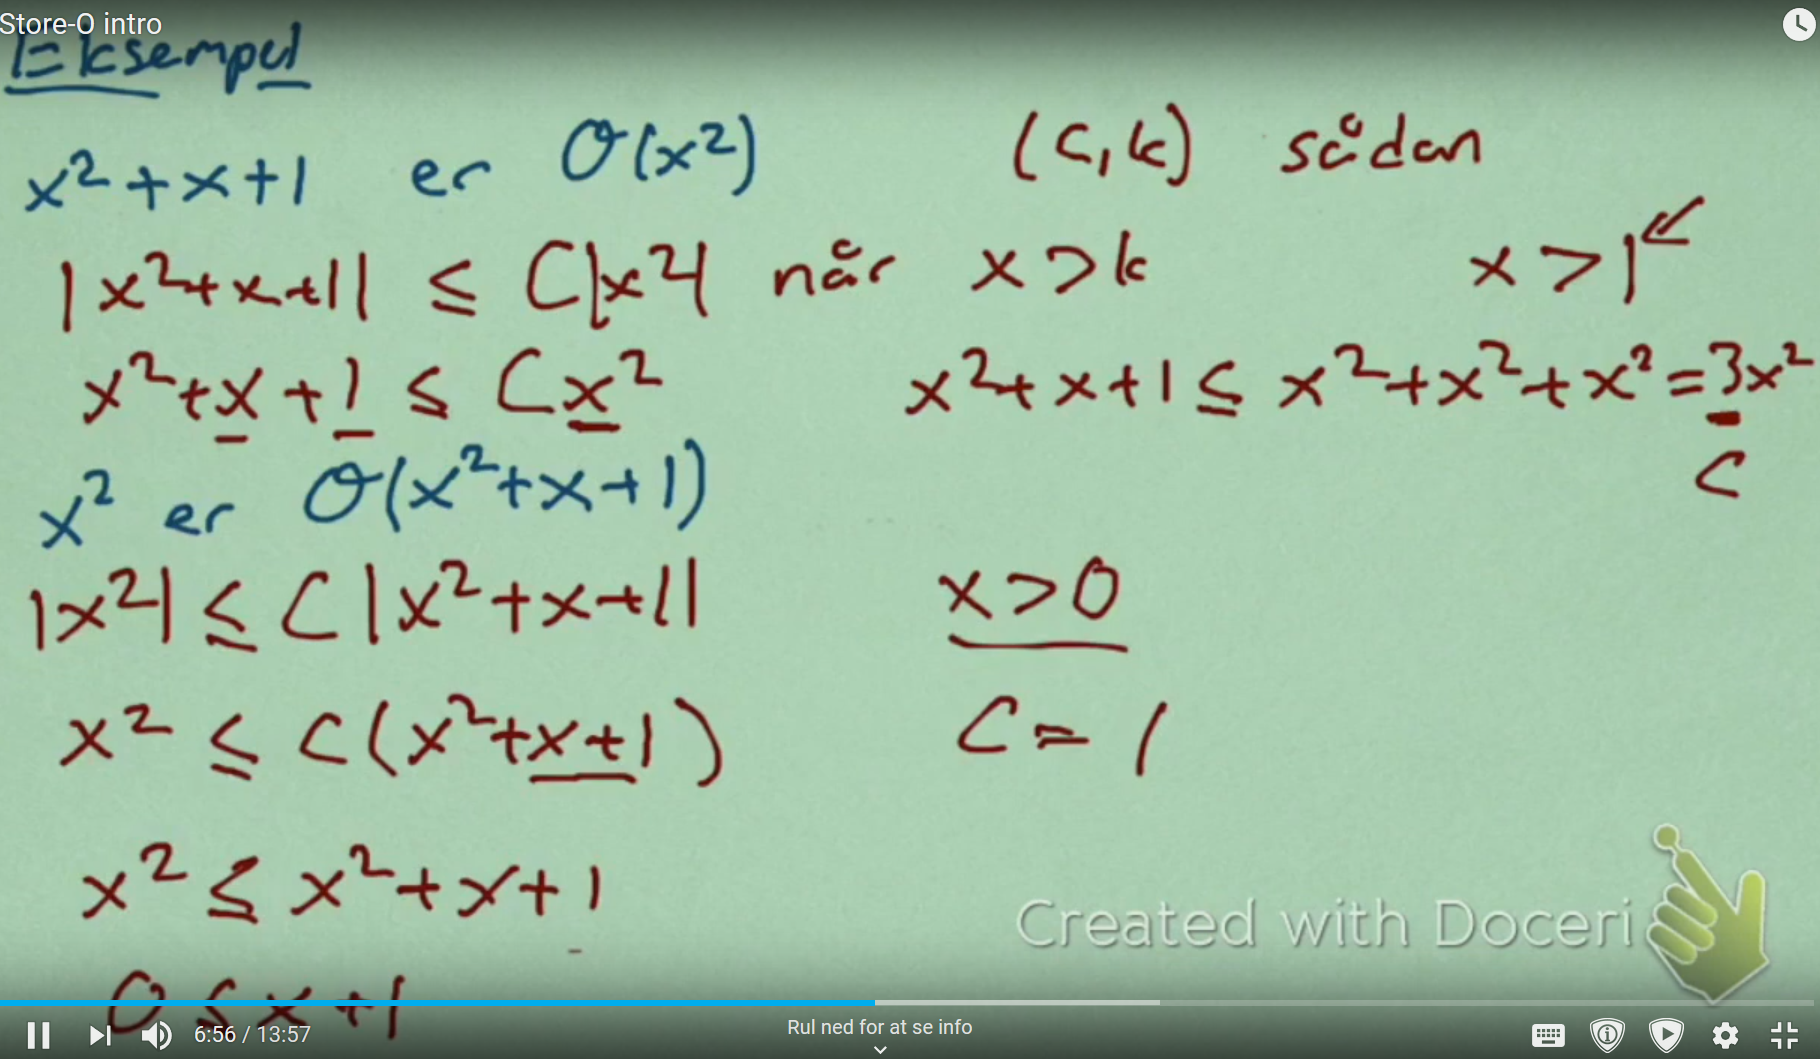 Store-O intro
Eksempel
x² + x + 1 er O(x²) (C, k) sådan
|x² + x + 1| ≤ C|x²| når x > k x > 1
x² + x + 1 ≤ Cx² x² + x + 1 ≤ x² + x² + x² = 3x²
C
x² er O(x² + x + 1)
|x²| ≤ C|x² + x + 1| x > 0
x² ≤ C(x² + x + 1) C = 1
x² ≤ x² + x + 1
Created with Doceri
0 ≤ x + 1
6:56 / 13:57 Rul ned for at se info